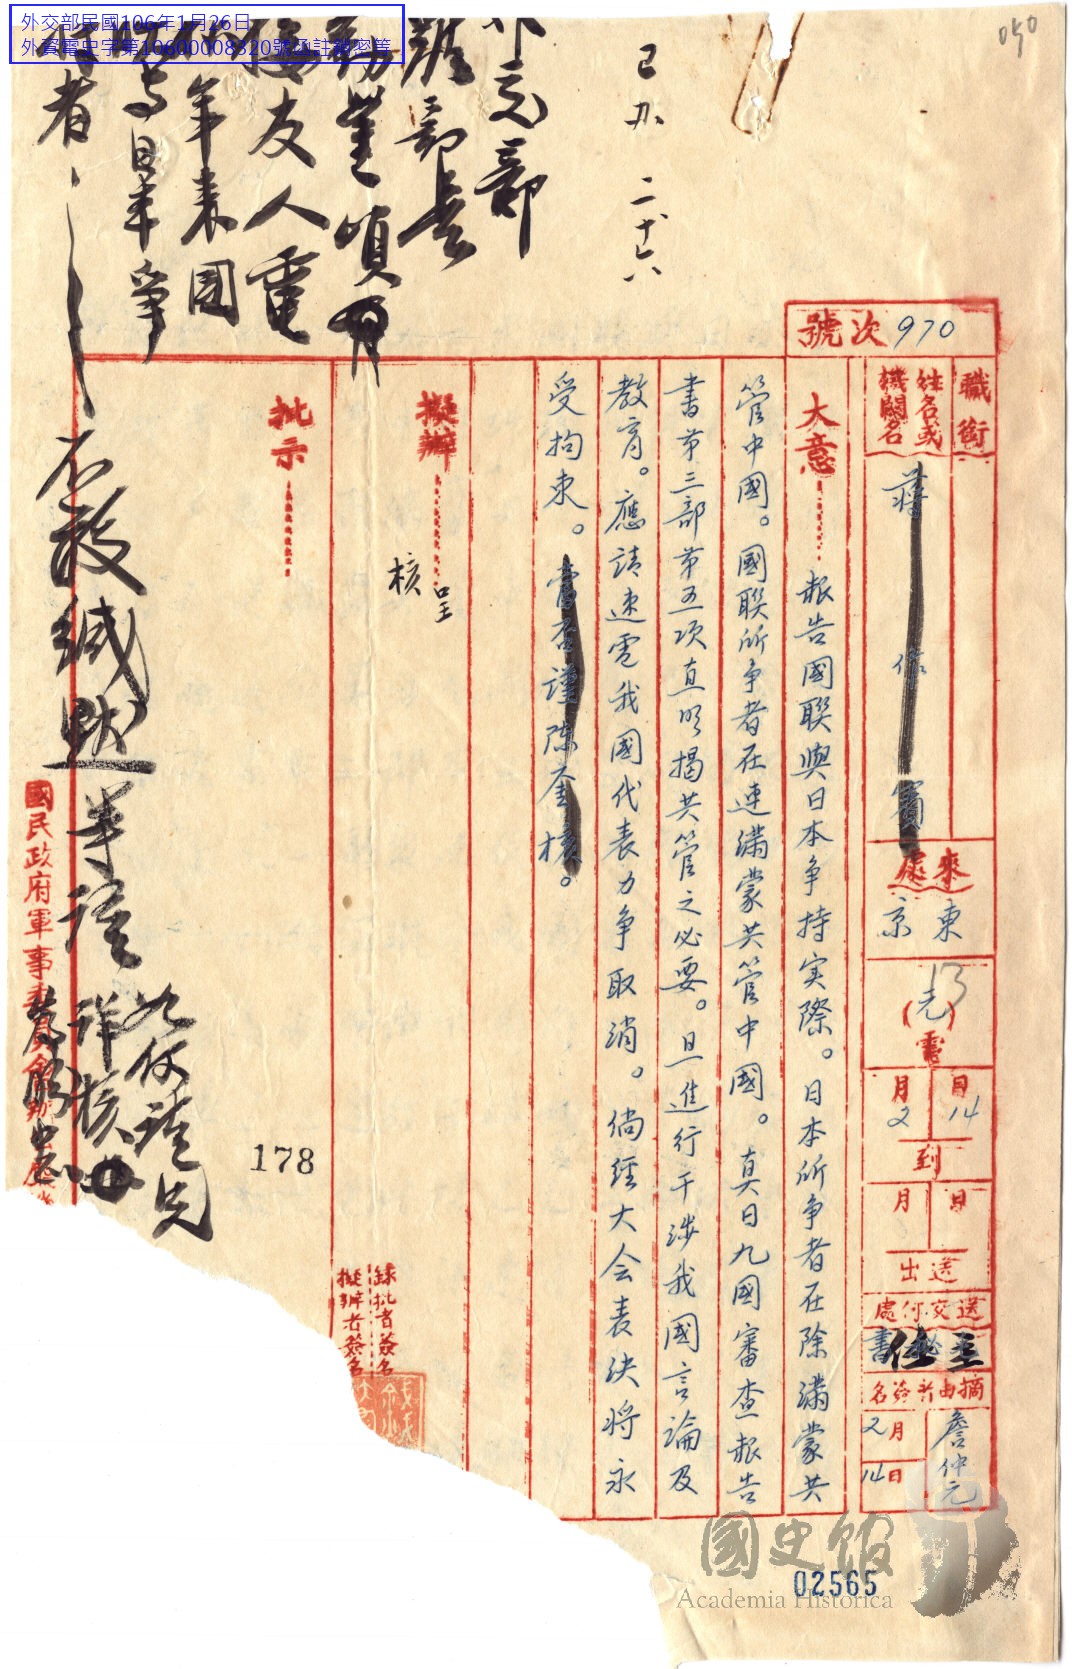 外交部民國106年1月26日
外資電史字第10600008320號函註銷密等
050
已办 二十六
外交部
羅部長
勛鑒頃
接友人電
年來國
與日本爭
持者
不設緘默等語
詳核
號次 970
職銜
姓名或機關名
蔣作賓
來處
東京
(元)電
13
2月14日到
月日送出
送交何處
摘由者簽名
詹仲元
2月14日
大意
報告國聯與日本争持实際。日本所争者在除滿蒙共
管中國。國聯所争者在連滿蒙共管中國。真日九國審查報告
書第三部第五项直明揭共管之必要。且進行干涉我國言論及
教育。應請速電我國代表力争取消。倘經大会表决将永
受拘束。當否謹陈奎核。
擬辦
呈核
批示
錄批者簽名
擬辦者簽名
國民政府軍事委員會
178
國史館
Academia Historica
02565